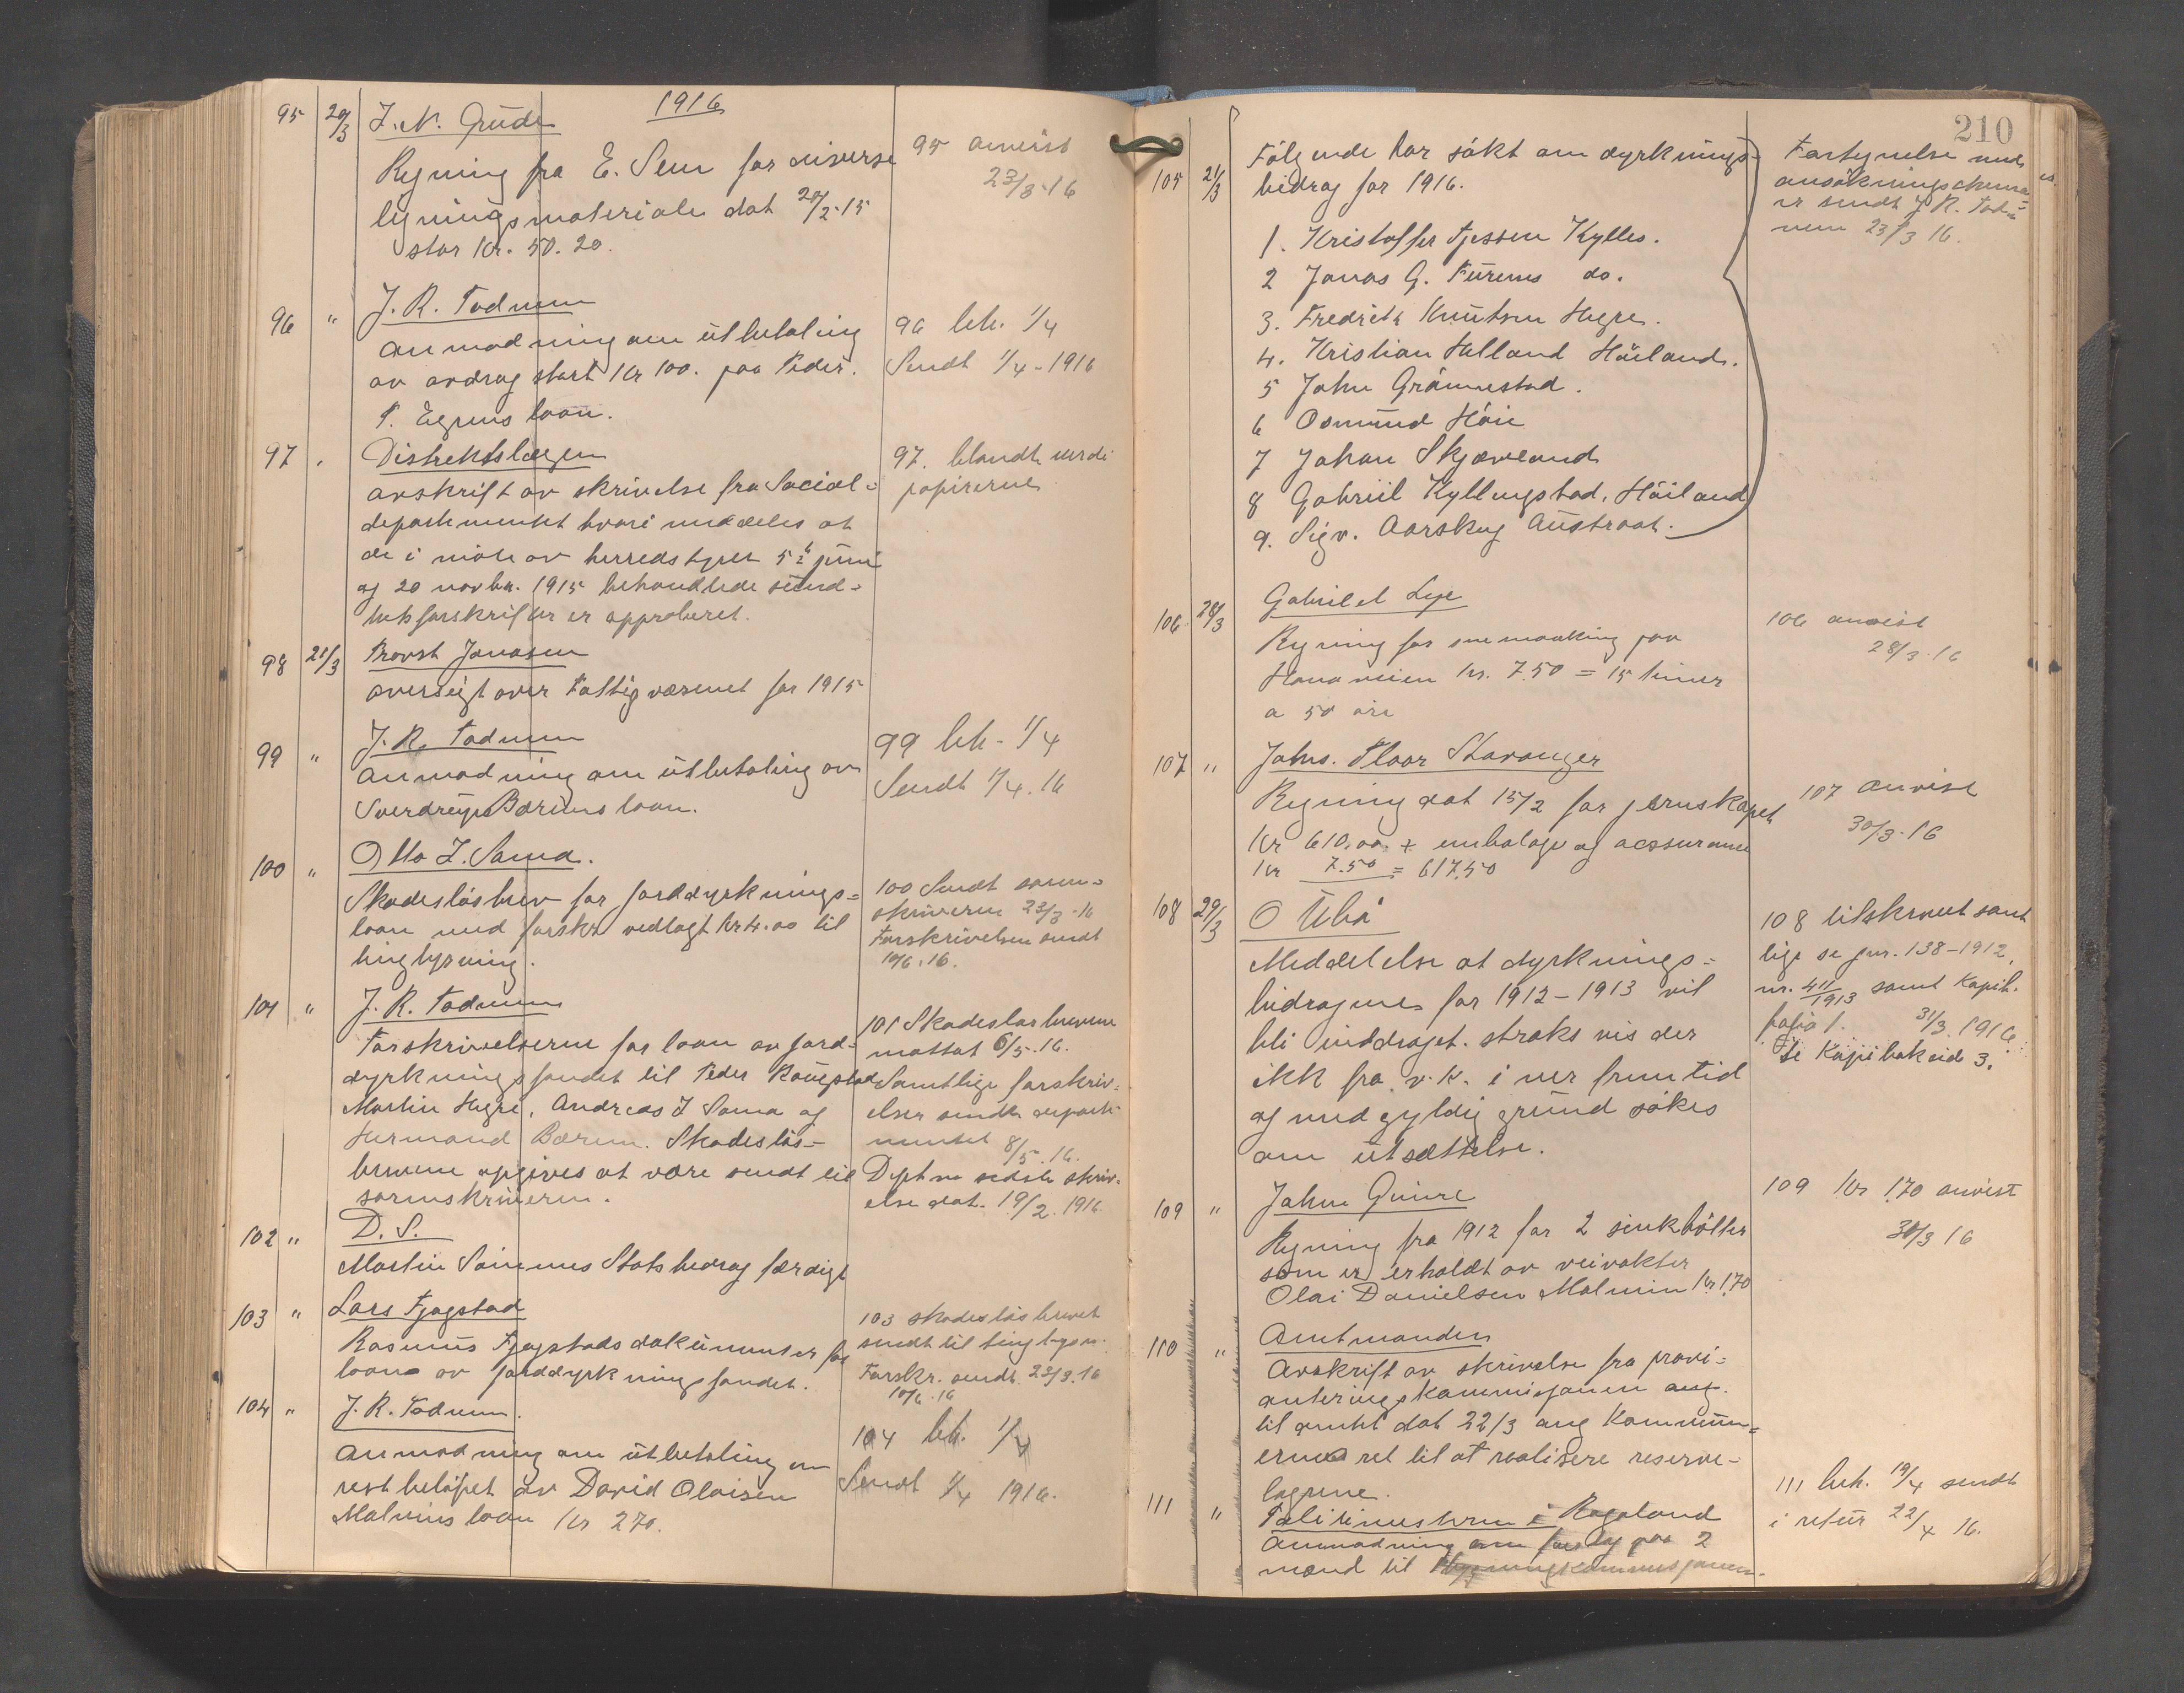 1916
95 20/3 J. N. Grude
Regning fra E. Sem for diverse
ligningsmateriale dat 20/2-15
stor Kr. 50.20.
95 anvist
23/3-16
96 " J. R. Todnem
anmodning om utbetaling
av avdrag stort Kr 100. paa Peder
T. Egenes laan.
96 beh. 1/4
Sendt 1/4-1916
97 " Distriktslægen
avskrift av skrivelse fra Social=
departementet hvori meddeles at
de i møte av herredstyret 5te juni
og 20 novbr. 1915 behandlede sund=
hetsforskrifter er approberet.
97. blandt verdi
papirerne
98 21/3 Provst Jonassen
oversigt over Fattigvæsenet for 1915
99 " J. R. Todnem
anmodning om utbetaling av
Sverdrup Bærems laan.
99 beh- 1/4
Sendt 1/4.16
100 " Otto I. Soma.
Skadesløsbrev for jorddyrknings=
laan med forskr. vedlagt kr 4.00 til
tinglysning.
100 Sendt soren=
skriveren 23/3-16
Forskrivelsen sendt
10/6.16.
101 " J. R. Todnem
Forskrivelserne for laan av jord=
dyrkningsfondet til Peder Kongstad
Martin Hegre, Andreas I Soma og
Hermand Bærem. Skadesløs=
brevene opgives at være sendt til
sorenskriveren.
101 Skadesløsbrevene
mottat 6/5.16.
Samtlige forskriv=
elser sendt departe
mentet 8/5.16.
Dept.s sidste skriv=
else dat. 19/2.1916.
102 " D. S.
Martin Soimes Statsbidrag færdigt
103 " Lars Fjogstad
Rasmus Fjogstads dokumenter for
laan av jorddyrkningsfondet.
103 skadesløsbrevet
sendt til tinglysn.
Forskr. sendt 23/3.16
10/6.16
104 " J. R. Todnem.
Anmodning om utbetaling av
restbeløpet av David Olaisen
Malmins laan Kr 270.
104 beh. 1/4
Sendt 1/4 1916.
210
105 21/3 Følgende har søkt om dyrknings=
bidrag for 1916.
1. Kristoffer Tjessem Kylles.
2 Jonas G. Furenes do.
3. Fredrik Knutsen Hegre.
4. Kristian Helland Høiland.
5 John Grønnestad.
6 Osmund Høie
7 Johan Skjæveland
8 Gabriel Kyllingstad, Høiland
9. Sigv. Aarskog Austraat.
Fortegnelse med
ansøkningschema
er sendt J R. Tod=
nem 23/3 16.
106 28/3 Gabriel Lye
Regning for snemaaking paa
Hanaveien kr. 7.50 = 15 timer
a 50 øre
106 anvist
28/3.16
107 " Johs. Floor Stavanger
Regning dat 15/2 for jernskapet
Kr 610.00 + embalage og acssurance
Kr 7.50 = 617.50
107 anvist
30/3.16
108 29/3 O Ueå
Meddelelse at dyrknings=
bidragene for 1912-1913 vil
bli inddraget straks vis der
ikk fra v. k. i nær fremtid
og med gyldig grund søkes
om utsættelse.
108 tilskrevet samt
lige se jnr. 138-1912,
nr. 411/1913 samt Kopib.
folio 1. 31/3.1916
Se Kopibok side 3.
109 " John Gimre
Regning fra 1912 for 2 sinkbøtter
som er erholdt av veivokter
Olai Danielsen Malmin Kr 1.70
109 Kr 1.70 anvist
30/3 16
110 " Amtmanden
Avskrift av skrivelse fra provi=
anteringskommisjonen ang.
til amtet dat 22/3 ang Kommun=
ernes ret til at realisere reserve=
lagrene.
111 " Politimesteren i Rogaland
Anmodning om forslag paa 2
mænd til
111 beh. 19/4 sendt
i retur 22/4 16.